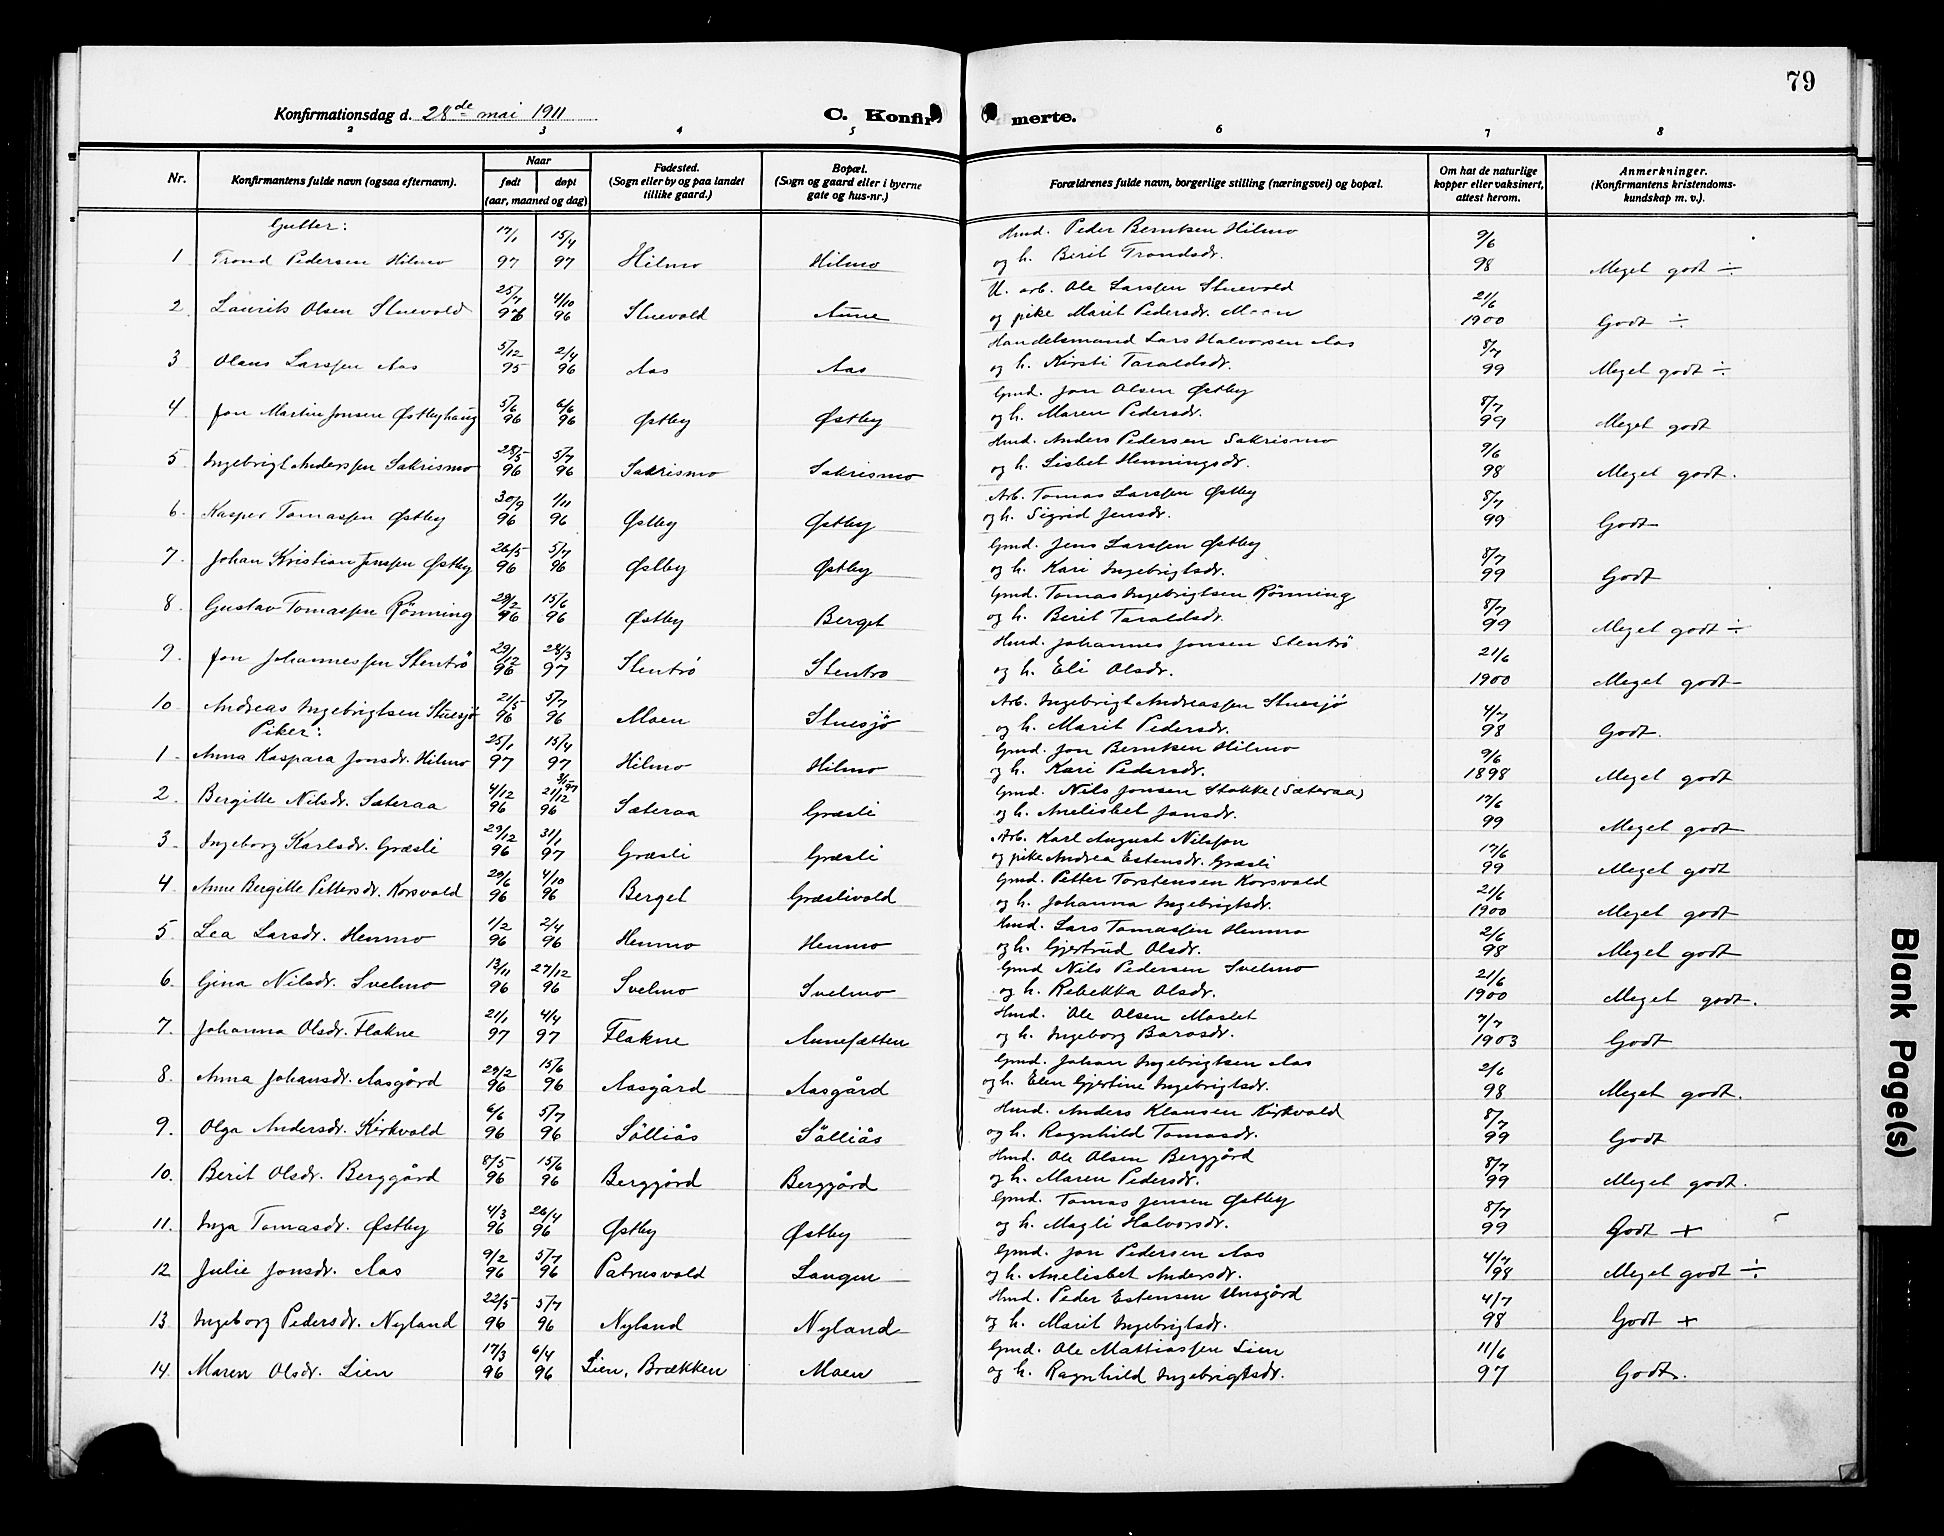 79
Konfirmationsdag d. 28de mai 1911
C. Konfirmerte.
2 3 4 5 6 7 8
Nr.
Konfirmantens fulde navn (ogsaa efternavn).
Naar
født døpt
(aar, maaned og dag)
Fødested.
(Sogn eller by og paa landet
tillike gaard.)
Bopæl.
(Sogn og gaard eller i byerne
gate og hus-nr.)
Forældrenes fulde navn, borgerlige stilling (næringsvei) og bopæl.
Om hat de naturlige
kopper eller vaksinert,
attest herom.
Anmerkninger.
(Konfirmantens kristendoms-
kundskap m. v.).
Gutter:
17/1 15/4 Hmd. Peder Berntsen Hilmo 9/6
1 Trond Pedersen Hilmo 97 97 Hilmo Hilmo og h. Berit Trondsdr. 98 Meget godt ÷
25/7 4/10 U. arb. Ole Larssen Stuevold 21/6
2 Laurits Olsen Stuevold 96 96 Stuevold Aune og pike Marit Pedersdr. Moen 1900 Godt ÷
5/12 2/4 Handelsmand Lars Halvorsen Aas 8/7
3 Olaus Larssen Aas 95 96 Aas Aas og h. Kirsti Taraldsdr. 99 Meget godt ÷
5/6 6/6 Gmd. Jon Olsen Østby 8/7
4. Jon Martin Jonsen Østbyhaug 96 96 Østby Østby og h. Maren Pedersdr. 99 Meget godt
28/5 5/7 Hmd. Anders Pedersen Sakrismo 9/6
5. Ingebrigt Anderssen Sakrismo 96 96 Sakrismo Sakrismo og h. Lisbet Henningsdr. 98 Meget godt.
30/9 1/11 Arb. Tomas Larssen Østby 8/7
6. Kasper Tomassen Østby 96 96 Østby Østby og h. Sigrid Jensdr. 99 Godt
26/5 5/7 Gmd. Jens Larssen Østby 8/7
7. Johan Kristian Jenssen Østby 96 96 Østby Østby og h. Kari Ingebrigtsdr. 99 Godt
29/2 15/6 Gmd. Tomas Ingebrigtsen Rönning 8/7
8. Gustav Tomassen Rönning 96 96 Østby Berget og h. Berit Taraldsdr. 99 Meget godt ÷
29/12 28/3 Hmd. Johannes Jonsen Stentrö 21/6
9. Jon Johannessen Stentrö 96 97 Stentrö Stentro og h. Eli Olsdr. 1900 Meget godt
21/5 5/7 Arb. Ingebrigt Andreassen Stuesjö 4/7
10 Andreas Ingebrigtsen Stuesjö 96 96 Moen Stuesjö og h. Marit Pedersdr. 98 Godt.
Piker:
25/1 15/4 Gmd. Jon Berntsen Hilmo 9/6
1. Anna Kaspara Jonsdr. Hilmo 97 97 Hilmo Hilmo og h. Kari Pedersdr. 1898 Meget godt
4/12 21/12 Gmd. Nils Jonsen Stokke (Sæteraa) 17/6
2. Bergitte Nilsdr. Sæteraa 96 96 Sæteraa Græsli og h. Anelisbet Jonsdr. 99 Meget godt
29/12 31/1 Arb. Karl August Nilsson 17/6
3. Ingeborg Karlsdr. Græsli 96 97 Græsli Græsli og pike Andrea Estensdr. Græsli 99 Meget godt
29/6 4/10 Gmd. Petter Torstensen Korsvold 21/6
4 Anne Bergitte Pettersdr. Korsvold 96 96 Berget Græslivold og h. Johanna Ingebrigtsdr. 1900 Meget godt
1/2 2/4 Hmd. Lars Tomassen Henmo 2/6
5. Lea Larsdr. Henmo 96 96 Henmo Henmo og h. Gjertrud Olsdr. 98 Meget godt
13/11 27/12 Gmd Nils Pedersen Svelmo 21/6
6. Gina Nilsdr. Svelmo 96 96 Svelmo Svelmo og h. Rebekka Olsdr. 1900 Meget godt.
21/1 4/4 Hmd. Ole Olsen Moslet 7/7
7. Johanna Olsdr. Flakne 97 97 Flakne Aunefætten og h. Ingeborg Barosdr. 1903 Godt
29/2 15/6 Gmd. Johan Ingebrigtsen Aas 2/6
8. Anna Johansdr. Aasgård 96 96 Aasgård Aasgård og h. Elen Gjertine Ingebrigtsdr. 98 Meget godt.
6/6 5/7 Hmd. Anders Klausen Kirkvold 8/7
9. Olga Andersdr. Kirkvold 96 96 Sölliås Sölliås og h. Ragnhild Tomasdr. 99 Godt
8/5 15/6 Hmd. Ole Olsen Berggård 8/7
10. Berit Olsdr. Berggård 96 96 Berggård Berggård og h. Maren Pedersdr. 99 Meget godt.
4/3 26/4 Gmd. Tomas Jensen Østby 8/7
11. Inga Tomasdr. Østby 96 96 Østby Østby og h. Magli Halvorsdr. 99 Godt +
9/2 5/7 Gmd. Jon Pedersen Aas 4/7
12 Julie Jonsdr. Aas 96 96 Patrusvold Langen og h. Anelisbet Andersdr. 98 Meget godt ÷
22/5 5/7 Hmd. Peder Estensen Unsgård 4/7
13. Ingeborg Pedersdr. Nyland 96 96 Nyland Nyland og h. Marit Ingebrigtsdr. 98 Godt +
17/3 6/4 Gmd. Ole Mattiassen Lien 11/6
14. Maren Olsdr. Lien 96 96 Lien, Brækken Moen og h. Ragnhild Ingebrigtsdr. 97 Godt.
Blank Page(s)